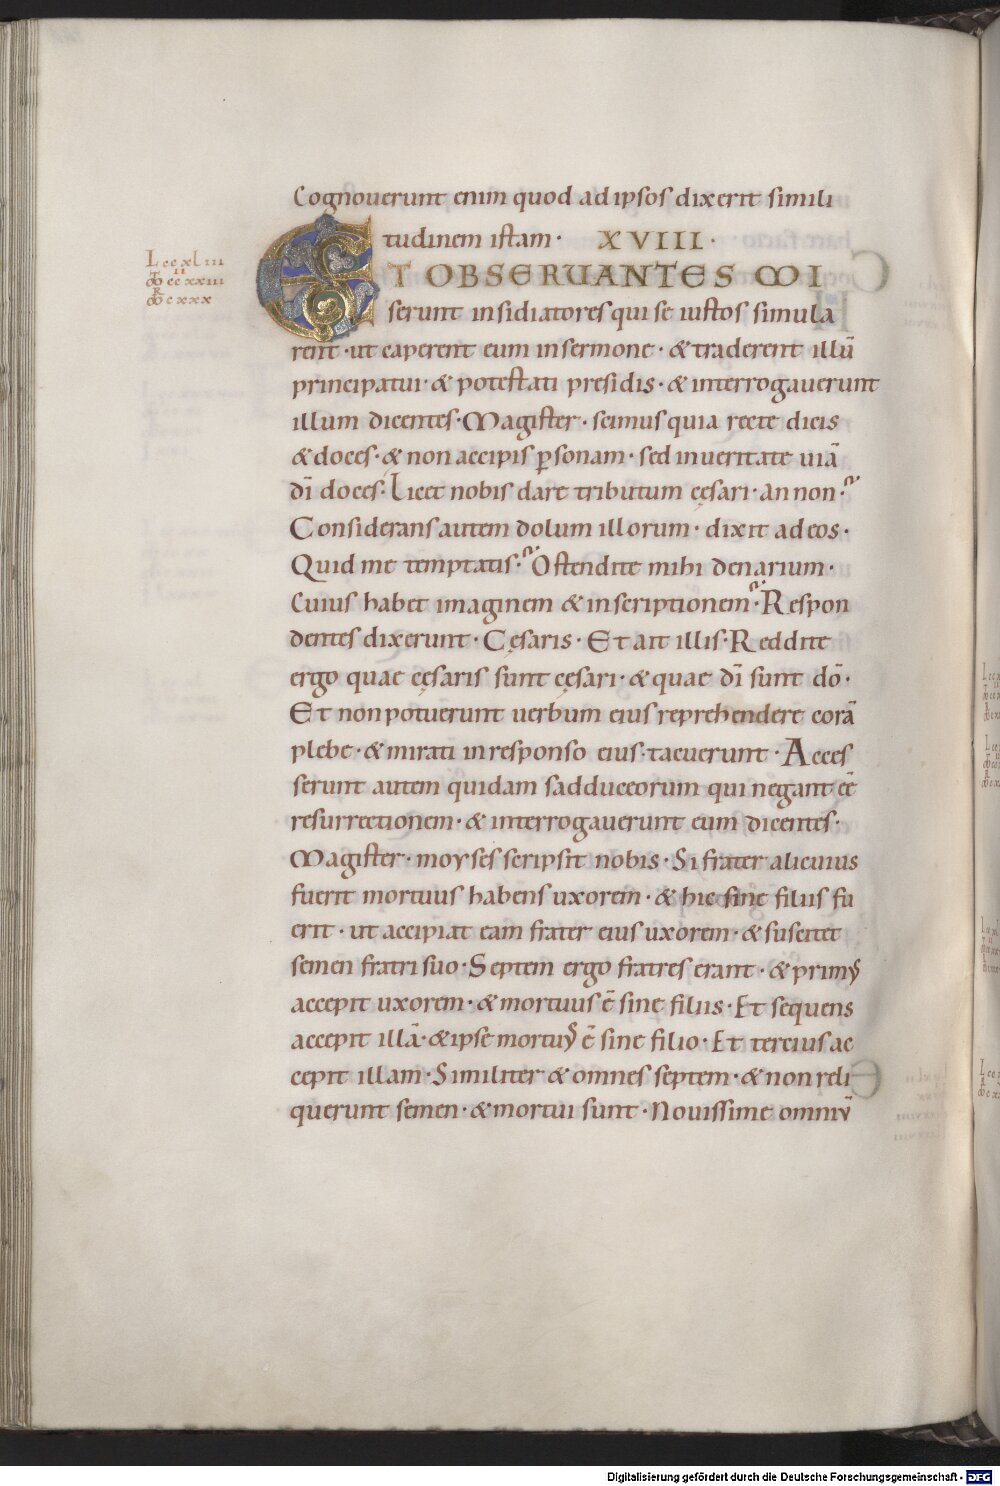 Cognouerunt enim quod ad ipsos dixerit simili
tudinem istam · XVIII ·
ET OBSERUANTES MI
serunt insidiatores qui se iustos simula
rent · ut caperent eum in sermone · & traderent illū
principatui · & potestati presidis · & interrogauerunt
illum dicentes · Magister · scimus quia recte dicis
& doces · & non accipis ꝑsonam · sed in ueritate uiā
dī doces · Licet nobis dare tributum cęsari · an non ·
Considerans autem dolum illorum · dixit ad eos ·
Quid me temptatis · Ostendite mihi denarium ·
Cuius habet imaginem & inscriptionem · Respon
dentes dixerunt · Cęsaris · Et ait illis · Reddite
ergo quae cęsaris sunt cęsari · & quae dī sunt dō ·
Et non potuerunt uerbum eius reprehendere corā
plebe · & mirati in responso eius · tacuerunt · Acces
serunt autem quidam sadduceorum qui negant eē
resurrectionem · & interrogauerunt eum dicentes ·
Magister · moyses scripsit nobis · Si frater alicuius
fuerit mortuus habens uxorem · & hic sine filiis fu
erit · ut accipiat eam frater eius uxorem · & suscitet
semen fratri suo · Septem ergo fratres erant · & primꝰ
accepit uxorem · & mortuus ē sine filiis · Et sequens
accepit illā · & ipse mortuꝰ ē sine filio · Et tercius ac
cepit illam · Similiter & omnes septem · & non reli
querunt semen · & mortui sunt · Nouissime omniū
L ccxliii
ii
M ccxxiii
M cxxx
Digitalisierung gefördert durch die Deutsche Forschungsgemeinschaft - DFG